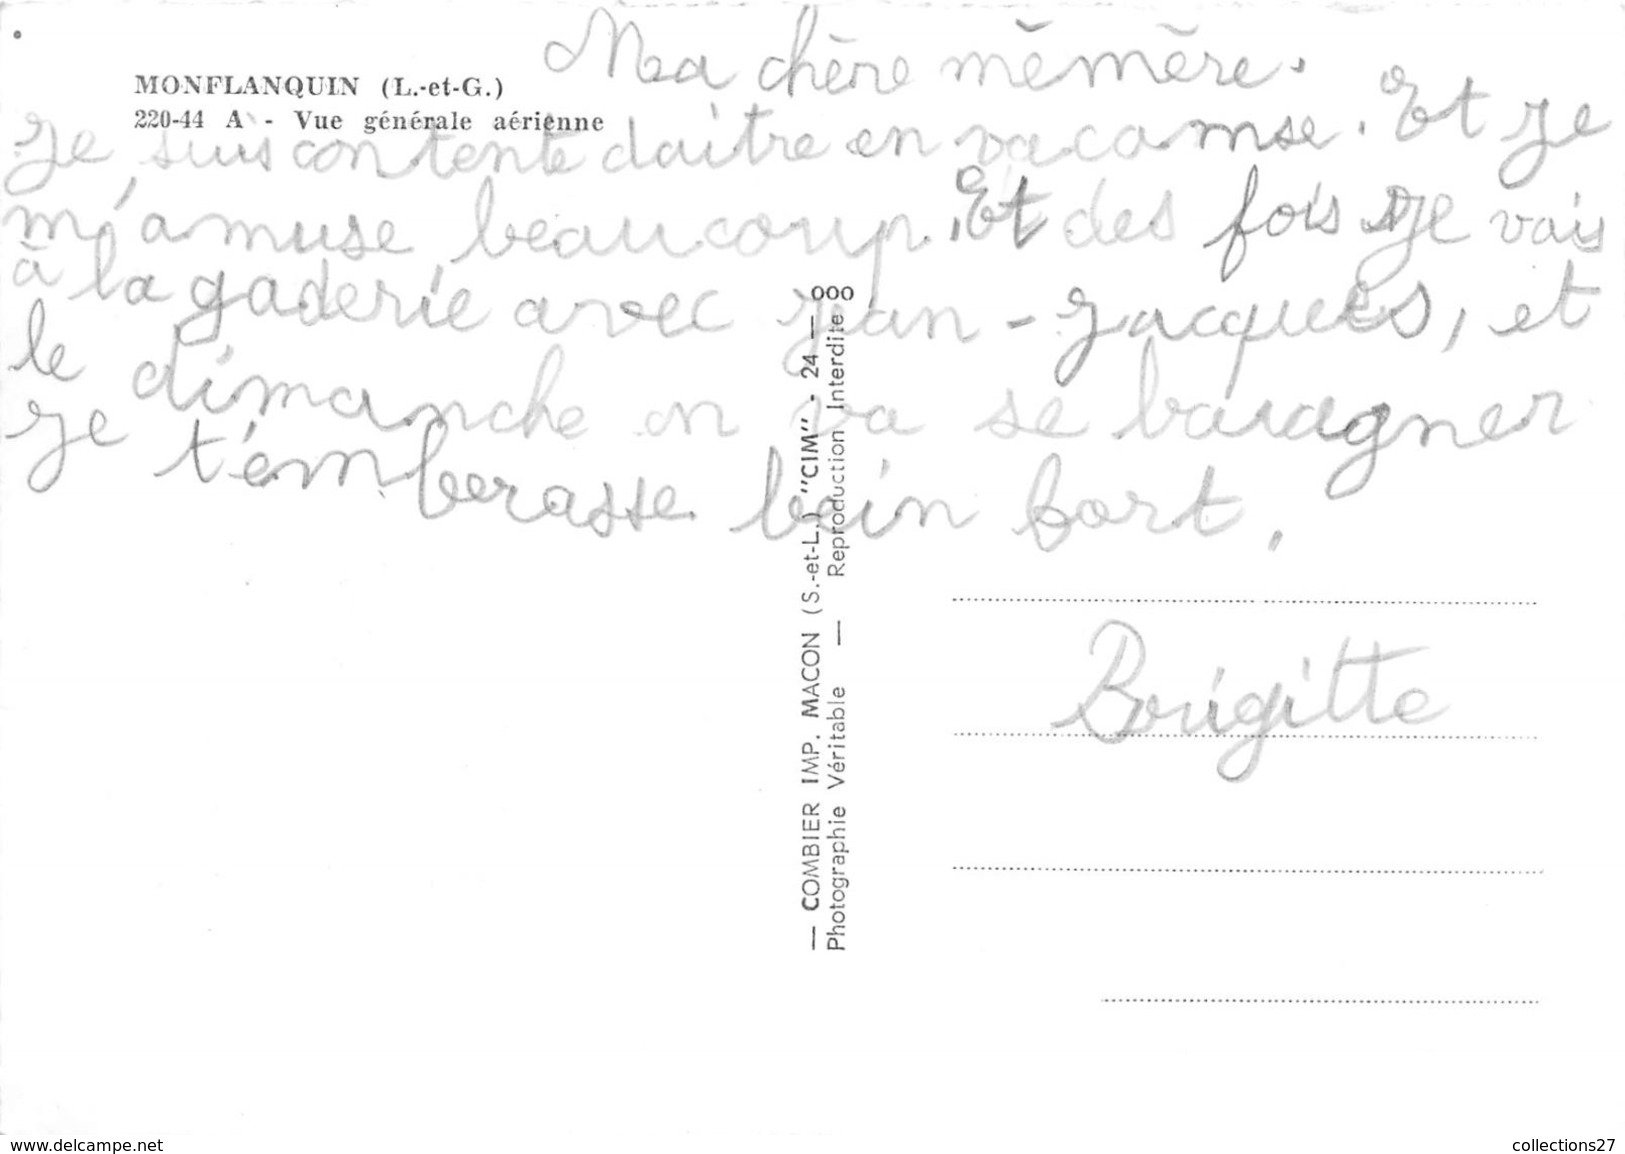 Ma chère mémère.
MONFLANQUIN (L.-et-G.)
220-44 A - Vue générale aérienne
Je suis contente daitre en vacamse. Et Je
m'amuse beaucoup. Et des fois Je vais
à la gaderie avec Jan-Jacques, et
le dimanche on va se baragner
Je t'emberasse bein fort.
Brigitte
— COMBIER IMP. MACON (S.-et-L.) "CIM" - 24 — 000
Photographie Véritable — Reproduction Interdite
www.delcampe.net
collections27